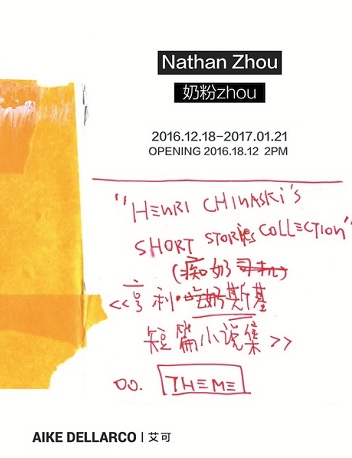 Nathan Zhou
奶粉zhou
2016.12.18-2017.01.21
OPENING 2016.18.12 2PM
"HENRI CHINASKI'S
SHORT STORIES COLLECTION"
(痴奶司机)
<<亨利·吃奶斯基
短篇小说集>>
00. THEME
AIKE DELLARCO | 艾可